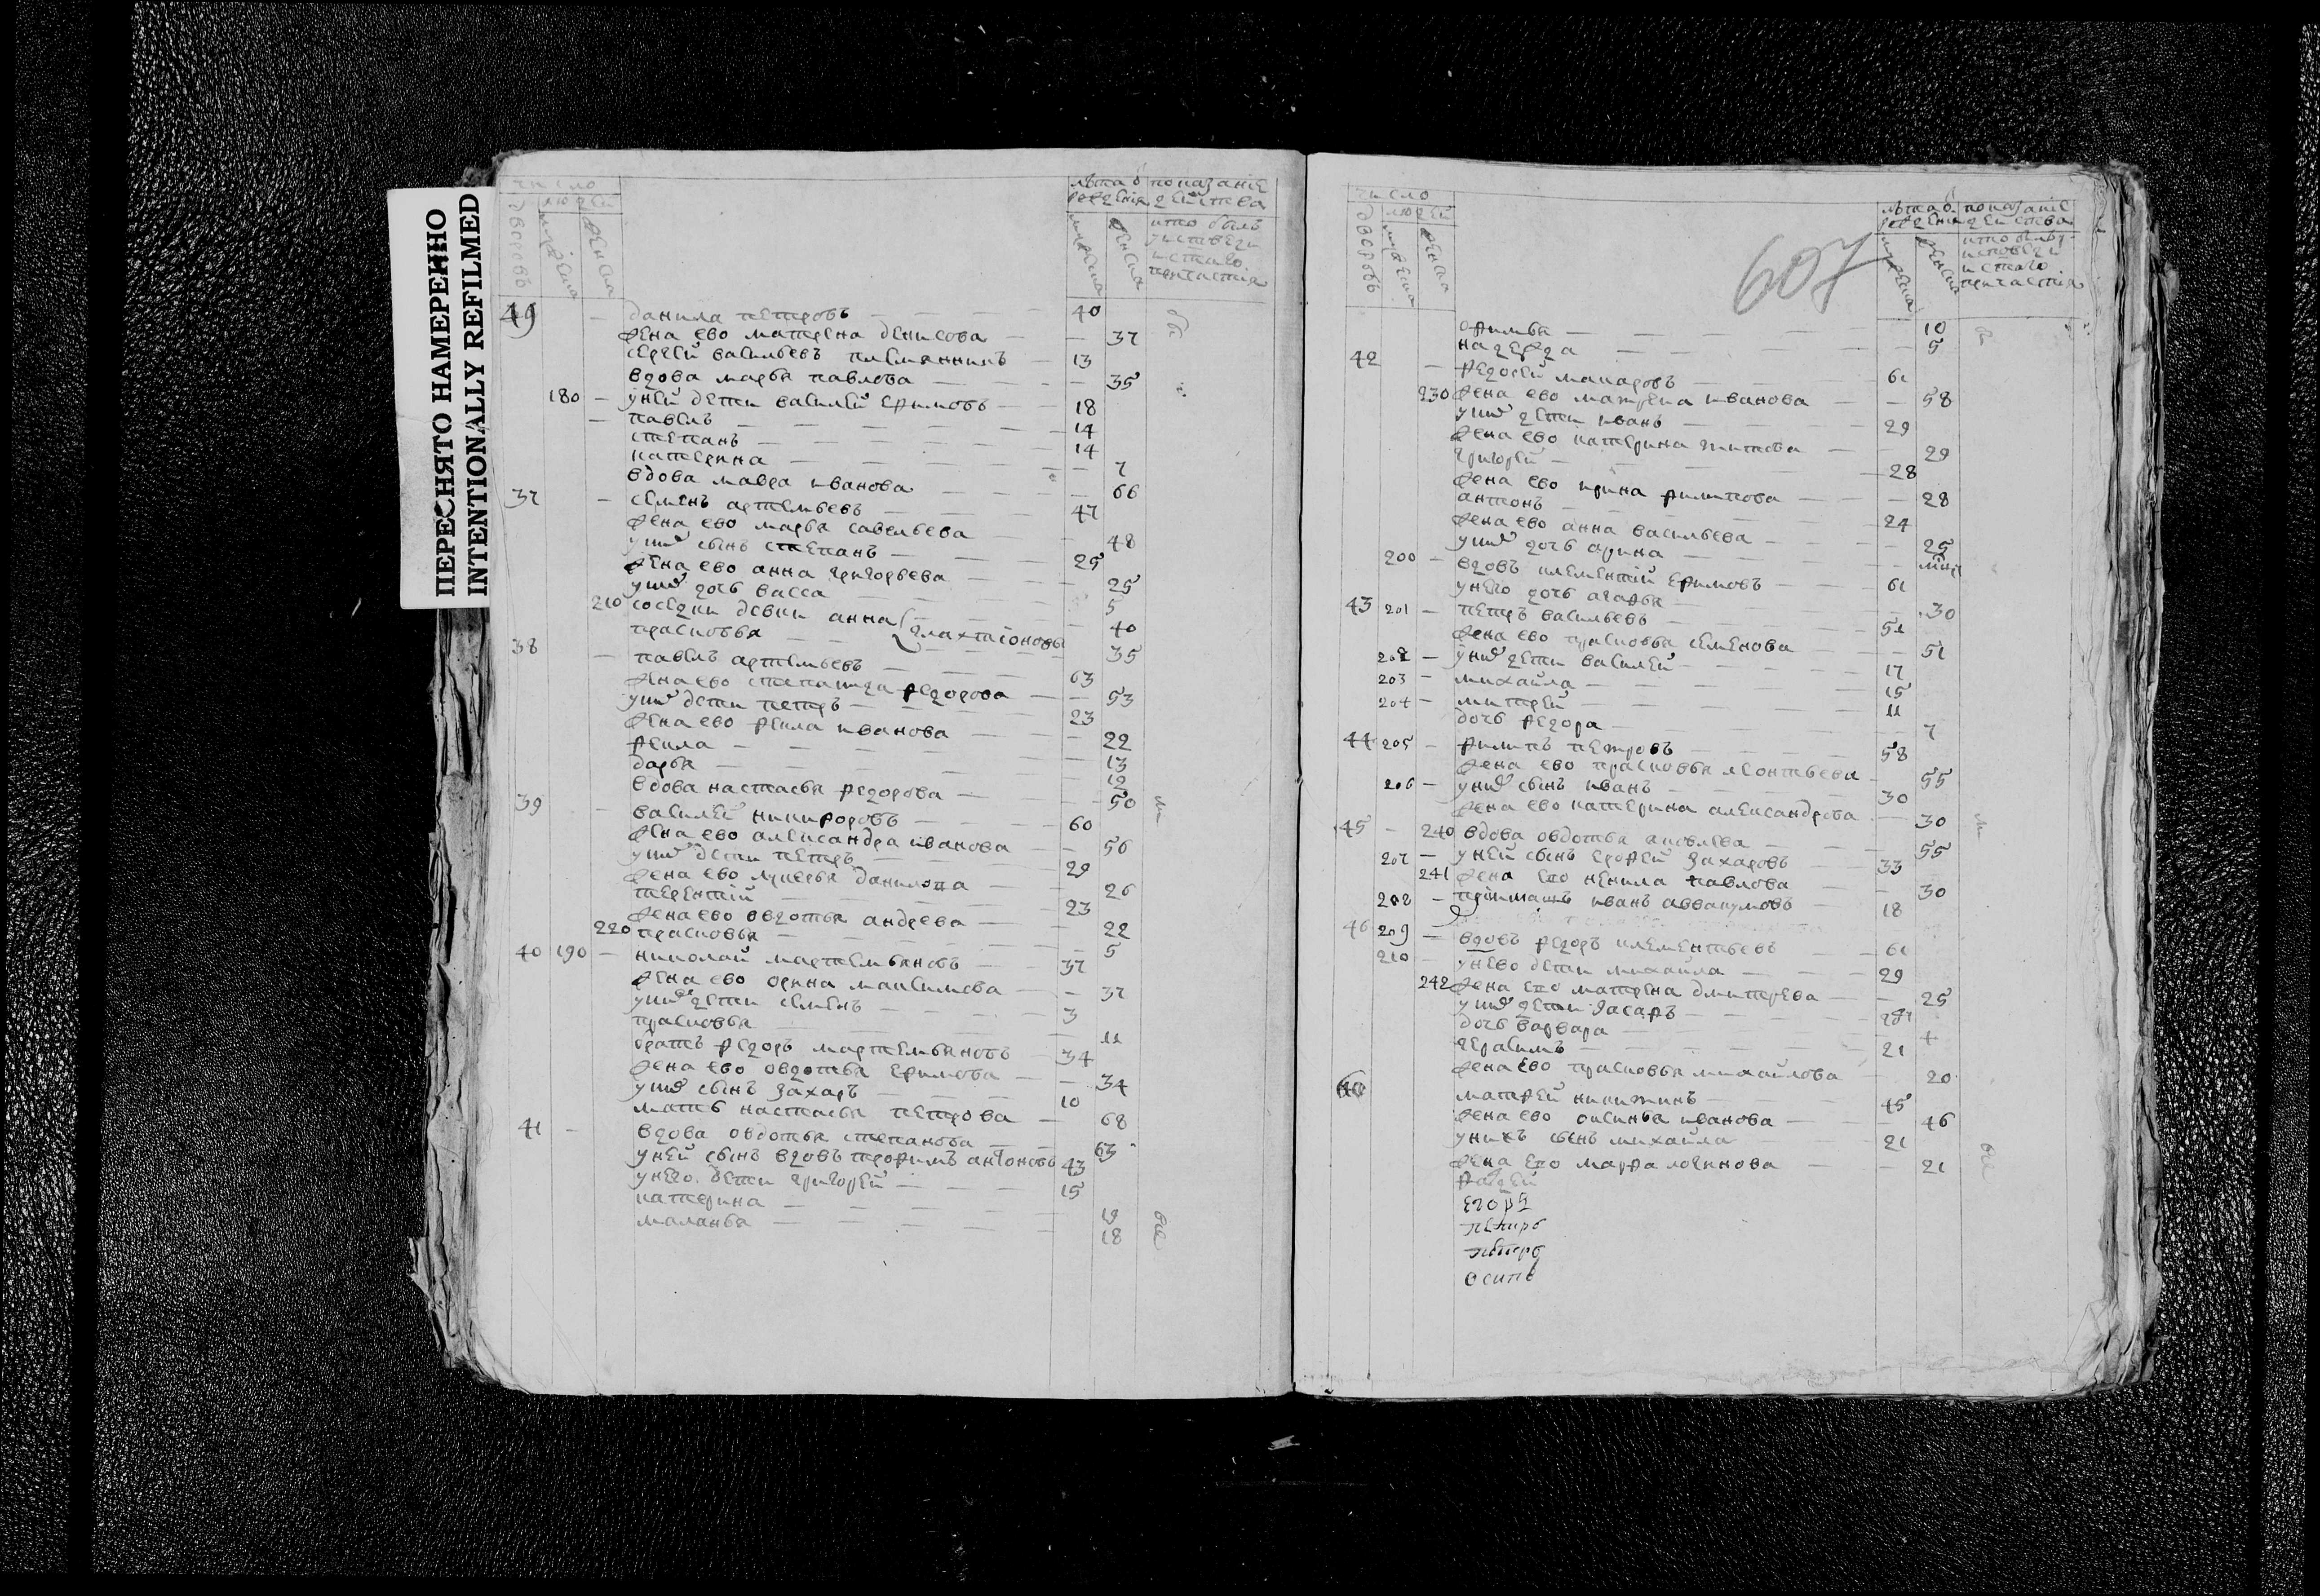 ПЕРЕСНЯТО НАМЕРЕННО
INTENTIONALLY REFILMED
число
людей
дворовъ
мужеска
женска
лѣта рождения
показание действа
мужеска
женска
кто былъ
у исповеди
и с̃таго
причастия
49 — данила петровъ — 40
жена ево матрена денисова — 37
сергей васильевъ племянникъ — 13
вдова марья павлова — 35
180 — у ней дети василей ефимовъ — 18
— павелъ — 14
степанъ — 14
катерина — 7
вдова мавра иванова — 66
37 — семенъ артемьевъ — 47
жена ево марья савельева — 48
у них сынъ степанъ — 25
жена ево анна григорьева — 25
у них дочь васса — 5
210 соседки девки анна — 40
прасковья галахтионовы — 35
38 — павелъ артемьевъ — 63
жена ево степанида федорова — 53
у них дети петръ — 23
жена ево фекла иванова — 22
фекла — 13
дарья — 12
вдова настасья федорова — 50
39 — василей никифоровъ — 60
жена ево александра иванова — 56
у них дети петръ — 29
жена ево лукерья данилова — 26
терентий — 23
жена ево овдотья андрева — 22
220 прасковья — 5
40 190 — николай мартемьяновъ — 37
жена ево орина максимова — 37
у них дети семенъ — 3
прасковья — 11
братъ федоръ мартемьяновъ — 34
жена ево овдотья ефимова — 34
у них сынъ захаръ — 10
мать настасья петрова — 68
41 — вдова овдотья степанова — 63
у ней сынъ вдовъ трофимъ антоновъ 43
у него дети григорей — 15
катерина — 19
маланья — 18
607
число
людей
дворовъ
мужеска
женска
лѣта рождения
показание действа
мужеска
женска
кто былъ у
исповеди
и с̃таго
причастия
офимья — 10
надежда — 5
42 — федосей макаровъ — 61
230 жена ево матрена иванова — 58
у них дети иванъ — 29
жена ево катерина титова — 29
григорей — 28
жена ево ирина филипова — 28
антонъ — 24
жена ево анна васильева — 25
у них дочь арина —
200 — вдовъ клементий ефимовъ — 61
у него дочь агафья — 30
43 201 — петръ васильевъ — 51
жена ево прасковья семенова — 51
202 — у них дети василей — 17
203 — михайла — 15
204 — митрей — 11
дочь федора — 7
44 205 — филипъ петровъ — 58
жена ево прасковья леонтьева — 55
206 — у них сынъ иванъ — 30
жена ево катерина александрова — 30
45 — 240 вдова овдотья яковлева — 55
207 — у ней сынъ ерофей захаровъ — 33
241 жена ево ненила павлова — 30
208 — приимашъ иванъ аввакумовъ — 18
46 209 — вдовъ федоръ клементьевъ — 61
210 — у нево дети михайла — 29
242 жена ево матрена дмитрева — 25
у них дети
дочь варвара
герасимъ — 21
жена ево прасковья михайлова — 20
матфей никитинъ — 45
жена ево оксинья иванова — 46
у них сынъ михайла — 21
жена ево марфа логинова — 21
фадей
егоръ
петръ
петръ
осипъ